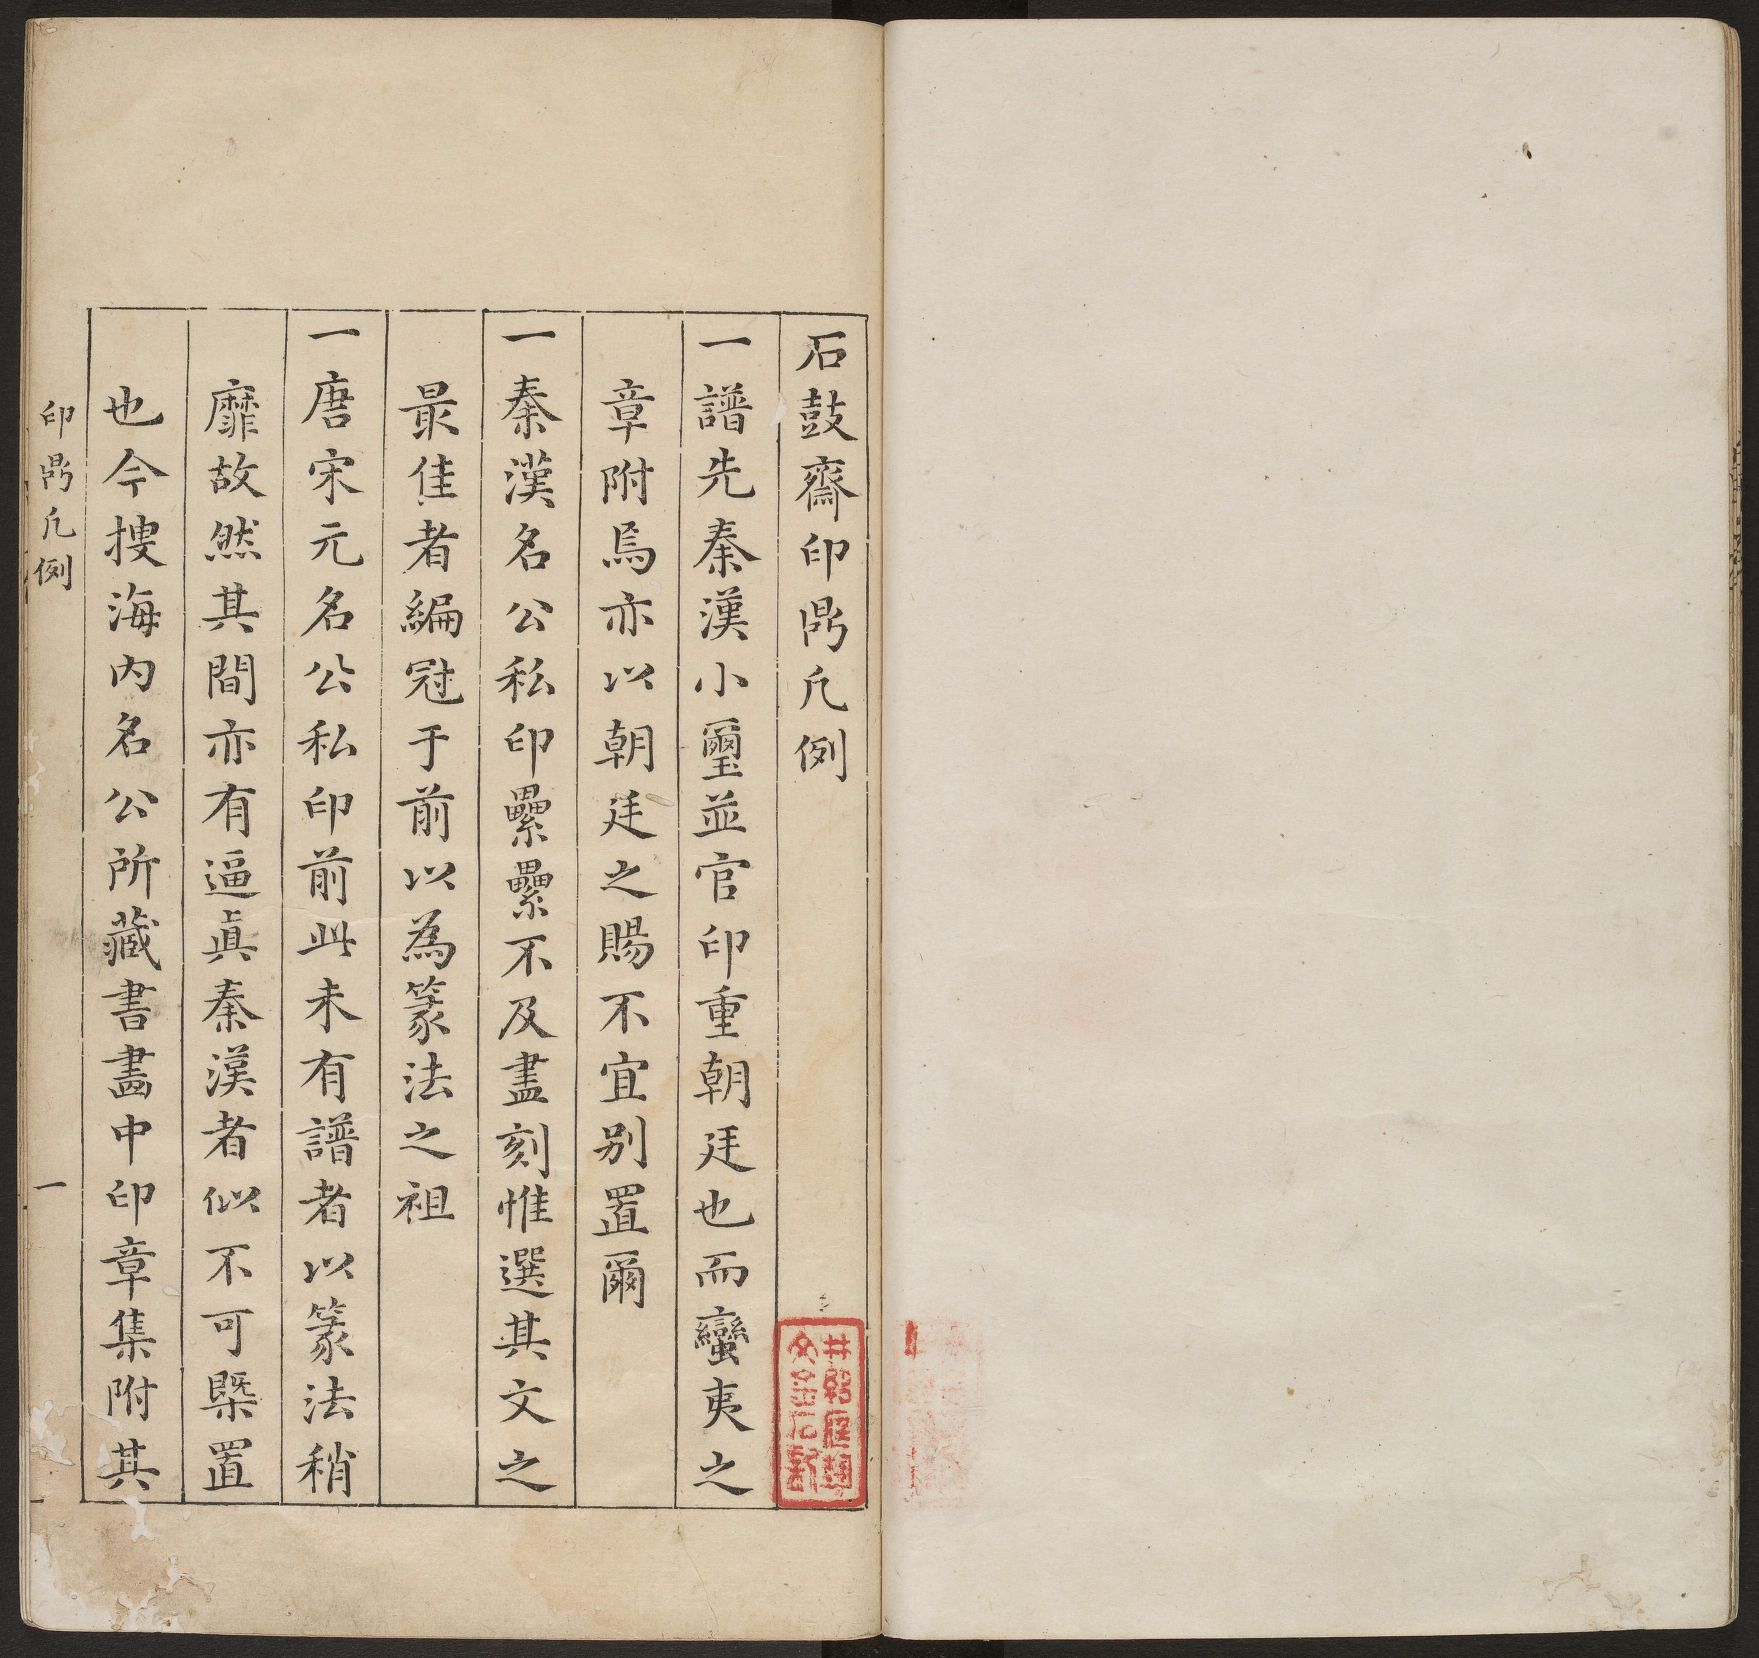 石鼓齋印鼎凡例
一譜先秦漢小璽並官印重朝廷也而蠻夷之
章附焉亦以朝廷之賜不宜別置爾
一秦漢名公私印纍纍不及盡刻惟選其文之
最佳者編冠于前以為篆法之祖
一唐宋元名公私印前此未有譜者以篆法稍
靡故然其間亦有逼眞秦漢者似不可槩置
也今搜海内名公所藏書畵中印章集附其
印鼎凡例
一